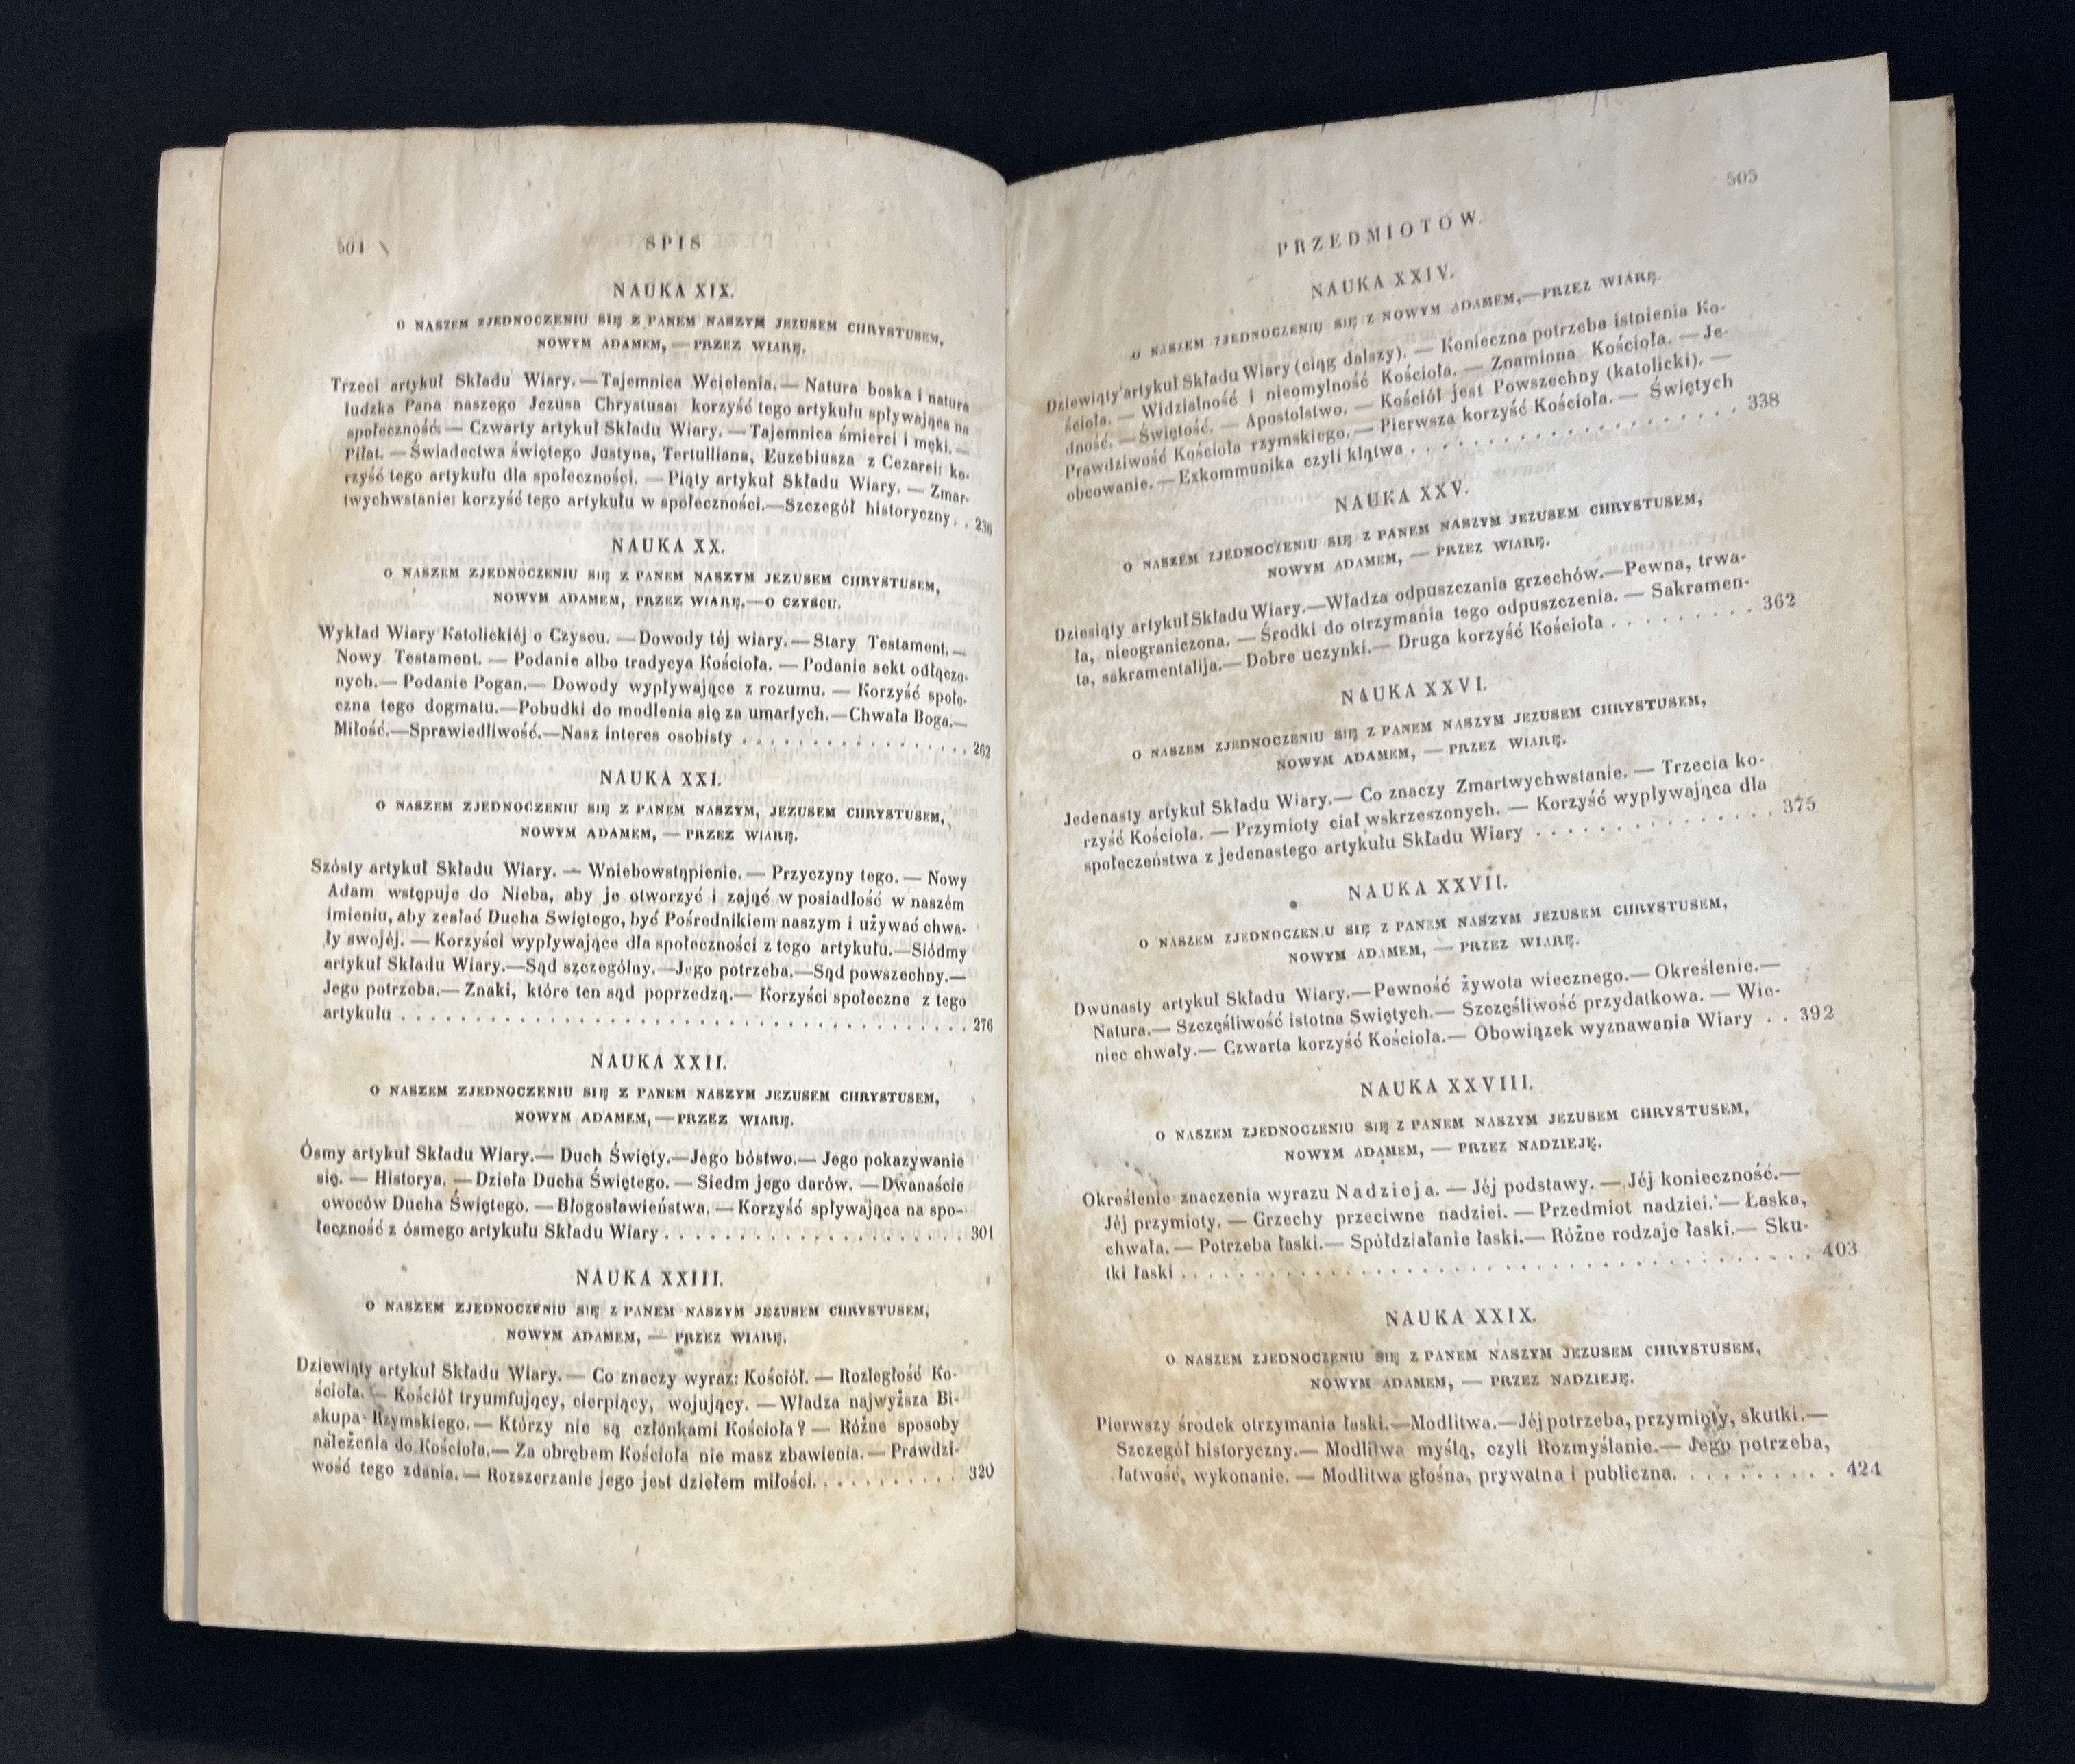 504
SPIS
NAUKA XIX.
O NASZEM ZJEDNOCZENIU SIĘ Z PANEM NASZYM JEZUSEM CHRYSTUSEM,
NOWYM ADAMEM, — PRZEZ WIARĘ.
Trzeci artykuł Składu Wiary. — Tajemnica Wcielenia. — Natura boska i natura
ludzka Pana naszego Jezusa Chrystusa: korzyść tego artykułu spływająca na
społeczność. — Czwarty artykuł Składu Wiary. — Tajemnica śmierci i męki. —
Piłat. — Świadectwa świętego Justyna, Tertulliana, Euzebiusza z Cezarei: ko-
rzyść tego artykułu dla społeczności. — Piąty artykuł Składu Wiary. — Zmar-
twychwstanie: korzyść tego artykułu w społeczności.—Szczegół historyczny. . 236
NAUKA XX.
O NASZEM ZJEDNOCZENIU SIĘ Z PANEM NASZYM JEZUSEM CHRYSTUSEM,
NOWYM ADAMEM, PRZEZ WIARĘ.—O CZYSCU.
Wykład Wiary Katolickiéj o Czyscu. — Dowody téj wiary. — Stary Testament. —
Nowy Testament. — Podanie albo tradycya Kościoła. — Podanie sekt odłączo-
nych.— Podanie Pogan.— Dowody wypływające z rozumu. — Korzyść społe-
czna tego dogmatu.—Pobudki do modlenia się za umarłych.—Chwała Boga.—
Miłość.—Sprawiedliwość.—Nasz interes osobisty . . . . . . . . . . . . . . . . . 262
NAUKA XXI.
O NASZEM ZJEDNOCZENIU SIĘ Z PANEM NASZYM, JEZUSEM CHRYSTUSEM,
NOWYM ADAMEM, — PRZEZ WIARĘ.
Szósty artykuł Składu Wiary. — Wniebowstąpienie. — Przyczyny tego. — Nowy
Adam wstępuje do Nieba, aby je otworzyć i zająć w posiadłość w naszém
imieniu, aby zesłać Ducha Swiętego, być Pośrednikiem naszym i używać chwa-
ły swojéj. — Korzyści wypływające dla społeczności z tego artykułu.—Siódmy
artykuł Składu Wiary.—Sąd szczególny.—Jego potrzeba.—Sąd powszechny.—
Jego potrzeba.— Znaki, które ten sąd poprzedzą.— Korzyści społeczne z tego
artykułu . . . . . . . . . . . . . . . . . . . . . . . . . . . . . . . . . . . . . . . 276
NAUKA XXII.
O NASZEM ZJEDNOCZENIU SIĘ Z PANEM NASZYM JEZUSEM CHRYSTUSEM,
NOWYM ADAMEM, — PRZEZ WIARĘ.
Ósmy artykuł Składu Wiary.— Duch Święty.—Jego bóstwo.— Jego pokazywanie
się. — Historya. — Dzieła Ducha Świętego. — Siedm jego darów. — Dwanaście
owoców Ducha Świętego. — Błogosławieństwa. — Korzyść spływająca na spo-
łeczność z ósmego artykułu Składu Wiary . . . . . . . . . . . . . . . . . . . . . 301
NAUKA XXIII.
O NASZEM ZJEDNOCZENIU SIĘ Z PANEM NASZYM JEZUSEM CHRYSTUSEM,
NOWYM ADAMEM, — PRZEZ WIARĘ.
Dziewiąty artykuł Składu Wiary. — Co znaczy wyraz: Kościół. — Rozległość Ko-
ścioła. — Kościół tryumfujący, cierpiący, wojujący. — Władza najwyższa Bi-
skupa Rzymskiego. — Którzy nie są członkami Kościoła? — Różne sposoby
należenia do Kościoła.— Za obrębem Kościoła nie masz zbawienia. — Prawdzi-
wość tego zdania. — Rozszerzanie jego jest dziełem miłości. . . . . . . . . . . 320
505
PRZEDMIOTOW.
NAUKA XXIV.
O NASZEM ZJEDNOCZENIU SIĘ Z NOWYM ADAMEM,—PRZEZ WIARĘ.
Dziewiąty artykuł Składu Wiary (ciąg dalszy). — Konieczna potrzeba istnienia Ko-
ścioła. — Widzialność i nieomylność Kościoła. — Znamiona Kościoła. — Je-
dność. — Świętość. — Apostolstwo. — Kościół jest Powszechny (katolicki). —
Prawdziwość Kościoła rzymskiego. — Pierwsza korzyść Kościoła. — Świętych
obcowanie. — Exkommunika czyli klątwa . . . . . . . . . . . . . . . . . . . 338
NAUKA XXV.
O NASZEM ZJEDNOCZENIU SIĘ Z PANEM NASZYM JEZUSEM CHRYSTUSEM,
NOWYM ADAMEM, — PRZEZ WIARĘ.
Dziesiąty artykuł Składu Wiary.—Władza odpuszczania grzechów.—Pewna, trwa-
ła, nieograniczona. — Środki do otrzymania tego odpuszczenia. — Sakramen-
ta, sakramentalija.— Dobre uczynki.— Druga korzyść Kościoła . . . . . . . . 362
NAUKA XXVI.
O NASZEM ZJEDNOCZENIU SIĘ Z PANEM NASZYM JEZUSEM CHRYSTUSEM,
NOWYM ADAMEM, — PRZEZ WIARĘ.
Jedenasty artykuł Składu Wiary.— Co znaczy Zmartwychwstanie. — Trzecia ko-
rzyść Kościoła. — Przymioty ciał wskrzeszonych. — Korzyść wypływająca dla
społeczeństwa z jedenastego artykułu Składu Wiary . . . . . . . . . . . . . . 375
NAUKA XXVII.
O NASZEM ZJEDNOCZENIU SIĘ Z PANEM NASZYM JEZUSEM CHRYSTUSEM,
NOWYM ADAMEM, — PRZEZ WIARĘ.
Dwunasty artykuł Składu Wiary.—Pewność żywota wiecznego.— Określenie.—
Natura.— Szczęśliwość istotna Swiętych.— Szczęśliwość przydatkowa. — Wie-
niec chwały.— Czwarta korzyść Kościoła.— Obowiązek wyznawania Wiary . . 392
NAUKA XXVIII.
O NASZEM ZJEDNOCZENIU SIĘ Z PANEM NASZYM JEZUSEM CHRYSTUSEM,
NOWYM ADAMEM, — PRZEZ NADZIEJĘ.
Określenie znaczenia wyrazu Nadzieja. — Jéj podstawy. — Jéj konieczność.—
Jéj przymioty. — Grzechy przeciwne nadziei. — Przedmiot nadziei. — Łaska,
chwała. — Potrzeba łaski.— Spółdziałanie łaski.— Różne rodzaje łaski.— Sku-
tki łaski . . . . . . . . . . . . . . . . . . . . . . . . . . . . . . . . . . . . . . 403
NAUKA XXIX.
O NASZEM ZJEDNOCZENIU SIĘ Z PANEM NASZYM JEZUSEM CHRYSTUSEM,
NOWYM ADAMEM, — PRZEZ NADZIEJĘ.
Pierwszy środek otrzymania łaski.—Modlitwa.—Jéj potrzeba, przymioty, skutki.—
Szczegół historyczny.— Modlitwa myślą, czyli Rozmyślanie.— Jego potrzeba,
łatwość, wykonanie. — Modlitwa głośna, prywatna i publiczna. . . . . . . . . . 424